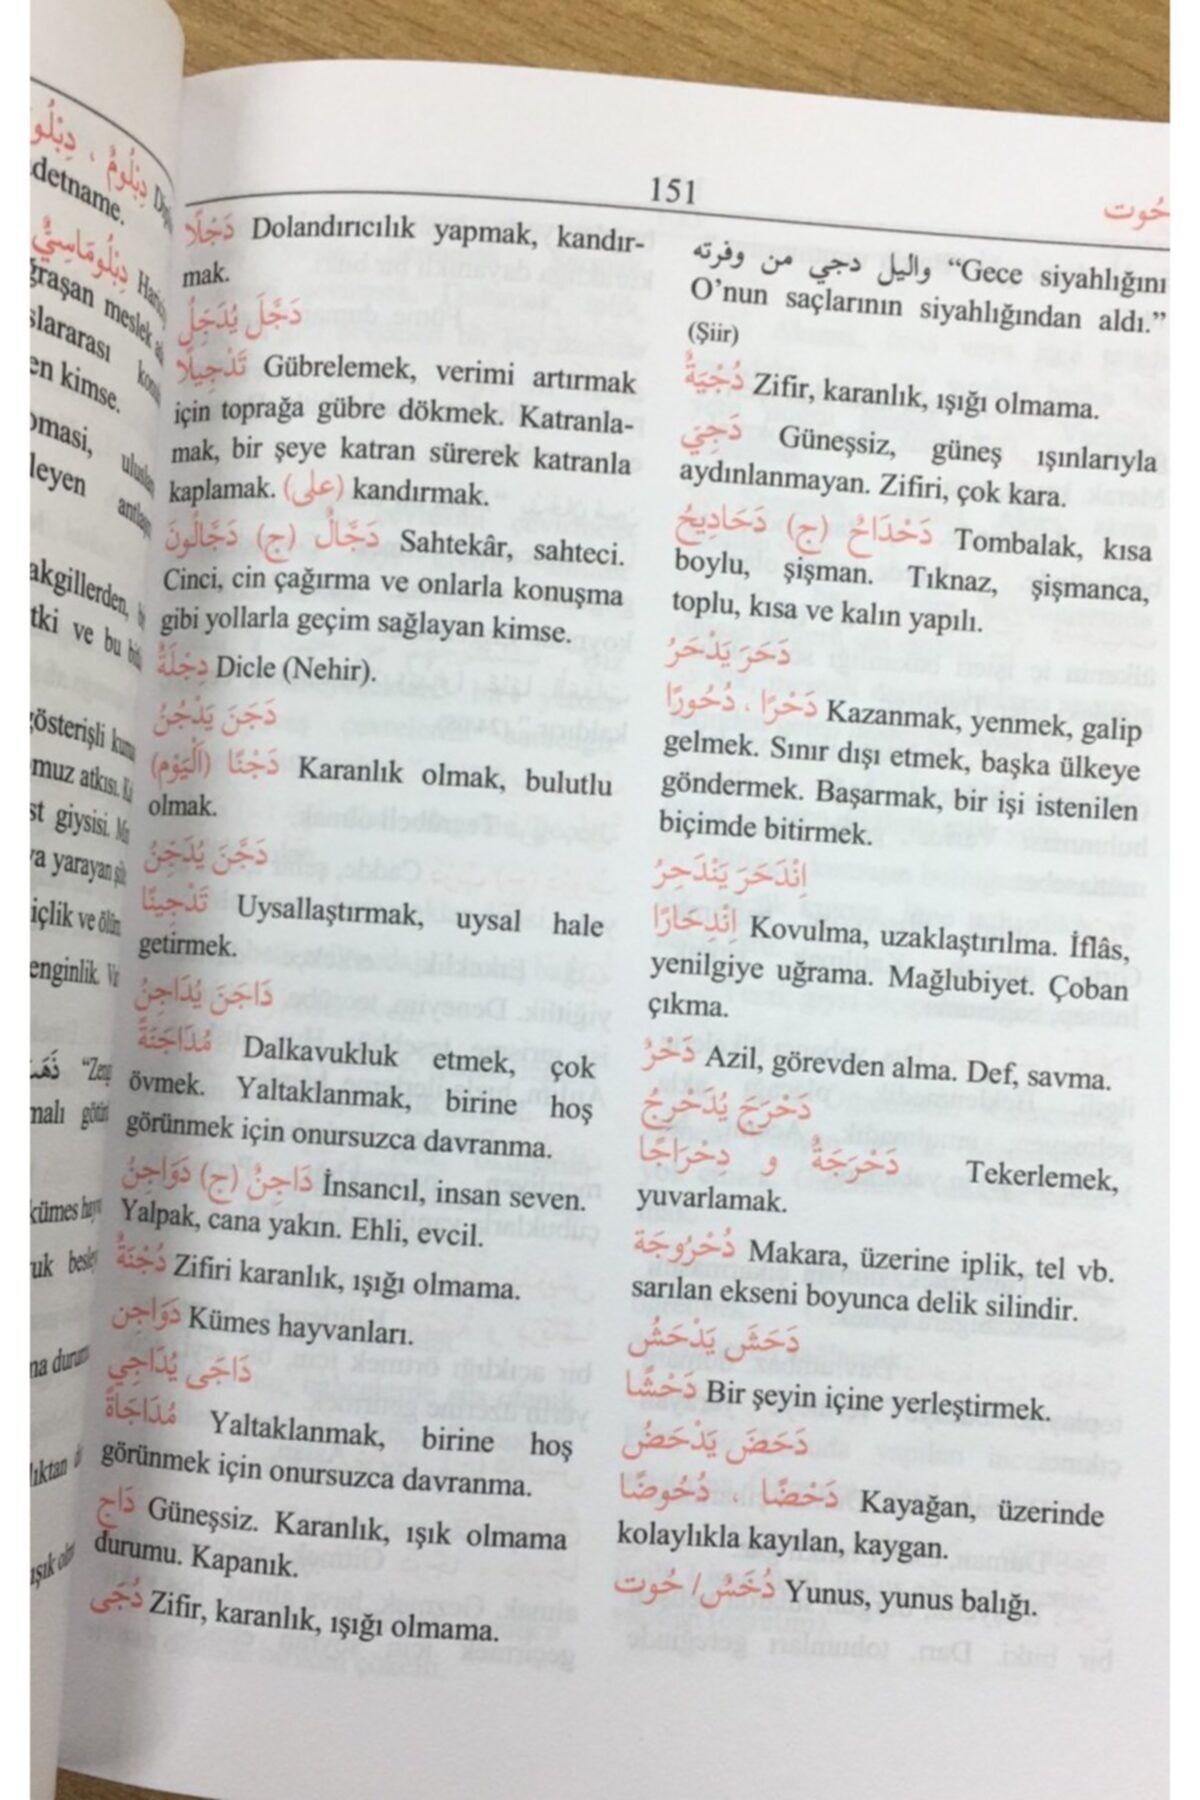 151
حُوت
دَجْلًا Dolandırıcılık yapmak, kandır-
mak.
دَجَّلَ يُدَجِّلُ
تَدْجِيلًا Gübrelemek, verimi artırmak
için toprağa gübre dökmek. Katranla-
mak, bir şeye katran sürerek katranla
kaplamak. (على) kandırmak.
دَجَّالٌ (ج) دَجَّالُونَ Sahtekâr, sahteci.
Cinci, cin çağırma ve onlarla konuşma
gibi yollarla geçim sağlayan kimse.
دِجْلَةٌ Dicle (Nehir).
دَجَنَ يَدْجُنُ
دَجْنًا (اَلْيَوْم) Karanlık olmak, bulutlu
olmak.
دَجَّنَ يُدَجِّنُ
تَدْجِينًا Uysallaştırmak, uysal hale
getirmek.
دَاجَنَ يُدَاجِنُ
مُدَاجَنَةً Dalkavukluk etmek, çok
övmek. Yaltaklanmak, birine hoş
görünmek için onursuzca davranma.
دَاجِنٌ (ج) دَوَاجِنُ İnsancıl, insan seven.
Yalpak, cana yakın. Ehli, evcil.
دُجْنَةٌ Zifiri karanlık, ışığı olmama.
دَوَاجِن Kümes hayvanları.
دَاجَى يُدَاجِي
مُدَاجَاةً Yaltaklanmak, birine hoş
görünmek için onursuzca davranma.
دَاج Güneşsiz. Karanlık, ışık olmama
durumu. Kapanık.
دُجَى Zifir, karanlık, ışığı olmama.
واليل دجي من وفرته “Gece siyahlığını
O’nun saçlarının siyahlığından aldı.”
(Şiir)
دُجْيَةٌ Zifir, karanlık, ışığı olmama.
دَجِيَ Güneşsiz, güneş ışınlarıyla
aydınlanmayan. Zifiri, çok kara.
دَحْدَاحٌ (ج) دَحَادِيحُ Tombalak, kısa
boylu, şişman. Tıknaz, şişmanca,
toplu, kısa ve kalın yapılı.
دَحَرَ يَدْحَرُ
دَحْرًا ، دُحُورًا Kazanmak, yenmek, galip
gelmek. Sınır dışı etmek, başka ülkeye
göndermek. Başarmak, bir işi istenilen
biçimde bitirmek.
اِنْدَحَرَ يَنْدَحِرُ
اِنْدِحَارًا Kovulma, uzaklaştırılma. İflâs,
yenilgiye uğrama. Mağlubiyet. Çoban
çıkma.
دَحْرٌ Azil, görevden alma. Def, savma.
دَحْرَجَ يُدَحْرِجُ
دَحْرَجَةً و دِحْرَاجًا Tekerlemek,
yuvarlamak.
دُحْرُوجَة Makara, üzerine iplik, tel vb.
sarılan ekseni boyunca delik silindir.
دَحَشَ يَدْحَشُ
دَحْشًا Bir şeyin içine yerleştirmek.
دَحَضَ يَدْحَضُ
دَحْضًا ، دُحُوضًا Kayağan, üzerinde
kolaylıkla kayılan, kaygan.
دُخَسٌ/ حُوت Yunus, yunus balığı.